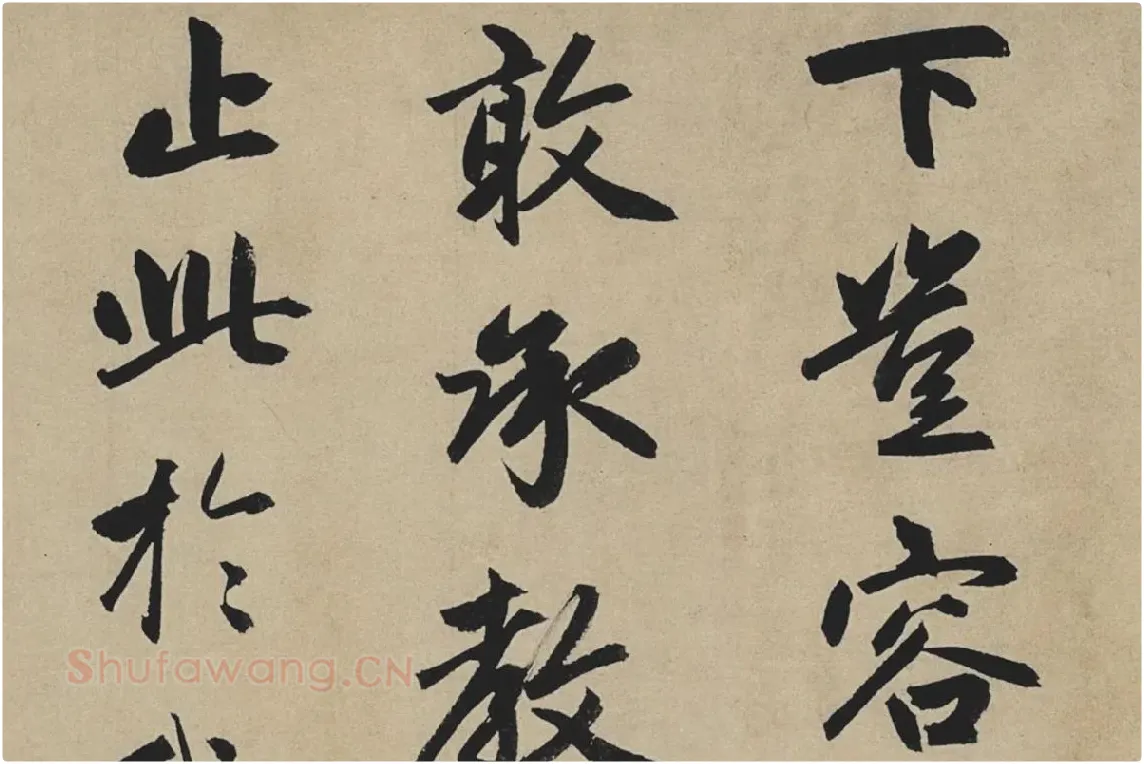 下豈容
敢承教
止此於
Shufawang.CN